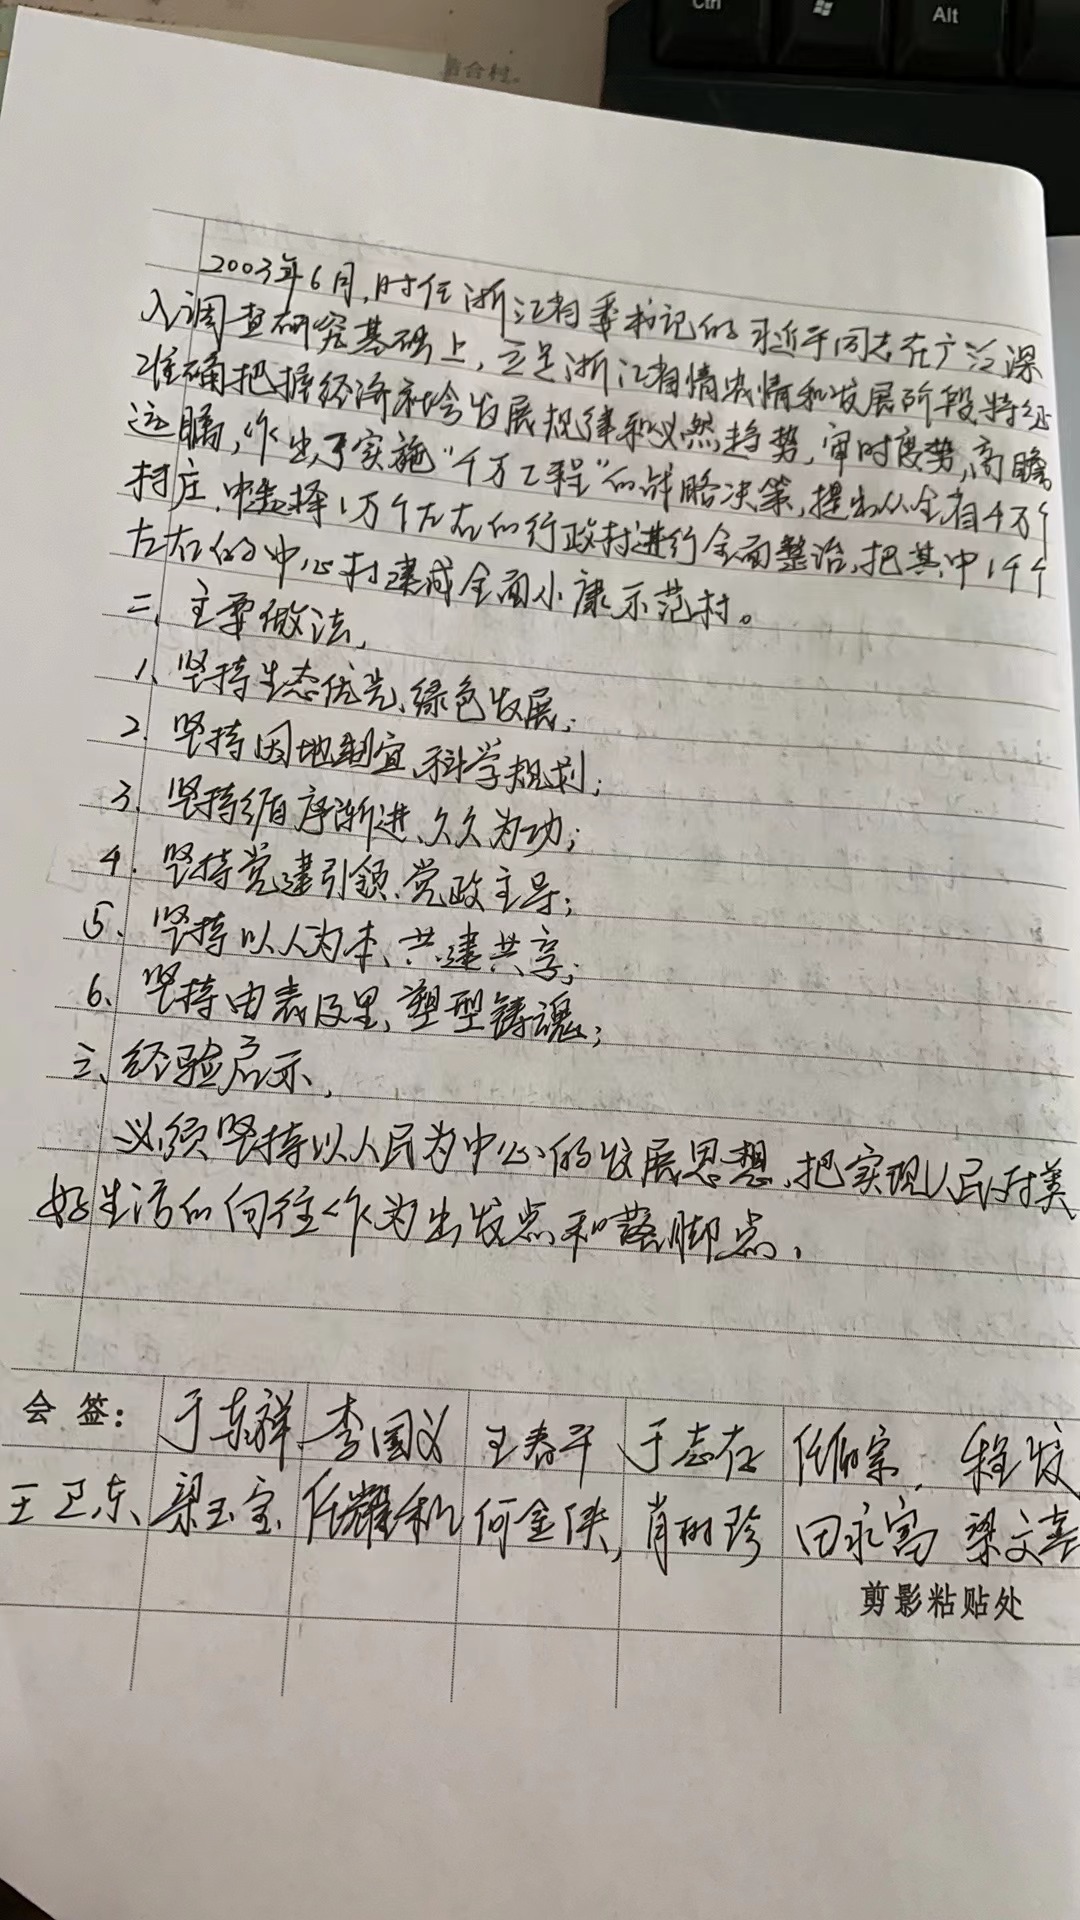 Ctrl
Alt
2003年6月,时任浙江省委书记的习近平同志在广泛深
入调查研究基础上,立足浙江省情农情和发展阶段特征
准确把握经济社会发展规律和必然趋势,审时度势,高瞻
远瞩,作出了实施“千万工程”的战略决策,提出从全省4万个
村庄中选择1万个左右的行政村进行全面整治,把其中1千个
左右的中心村建成全面小康示范村。
二、主要做法,
1、坚持生态优先、绿色发展;
2、坚持因地制宜、科学规划;
3、坚持循序渐进、久久为功;
4、坚持党建引领、党政主导;
5、坚持以人为本、共建共享;
6、坚持由表及里、塑型铸魂;
三、经验启示,
必须坚持以人民为中心的发展思想,把实现人民对美
好生活的向往作为出发点和落脚点,
会 签: 于东祥 李国义 王春平 于志在 任伯宗, 程发
王卫东、 梁玉宝 任耀和 何金侠, 肖树珍 田永富 梁文喜
剪影粘贴处